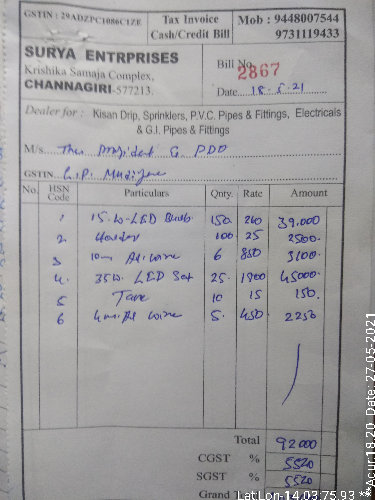 GSTIN : 29ADZPC1086C1ZE
Tax Invoice
Cash/Credit Bill
Mob : 9448007544
9731119433
SURYA ENTRPRISES
Krishika Samaja Complex,
CHANNAGIRI-577213.
Bill No. 2867
Date 18-5-21
Dealer for : Kisan Drip, Sprinklers, P.V.C. Pipes & Fittings, Electricals
& G.I. Pipes & Fittings
M/s The President & PDO
GSTIN G.P.
No. HSN Code Particulars Qnty. Rate Amount
1 15 W-LED Bulb 150 260 39,000
2. Holder 100 25 2500.
3 wire 6 5100.
4. 35W. LED Set 25. 1800 45000.
5 Tape 10 15 150.
6 wire 5. 450. 2250
Total 92000
CGST % 5520
SGST % 5520
Grand T
LatLon-14.03:75.93 **Acur.18.20 Date: 27-05-2021